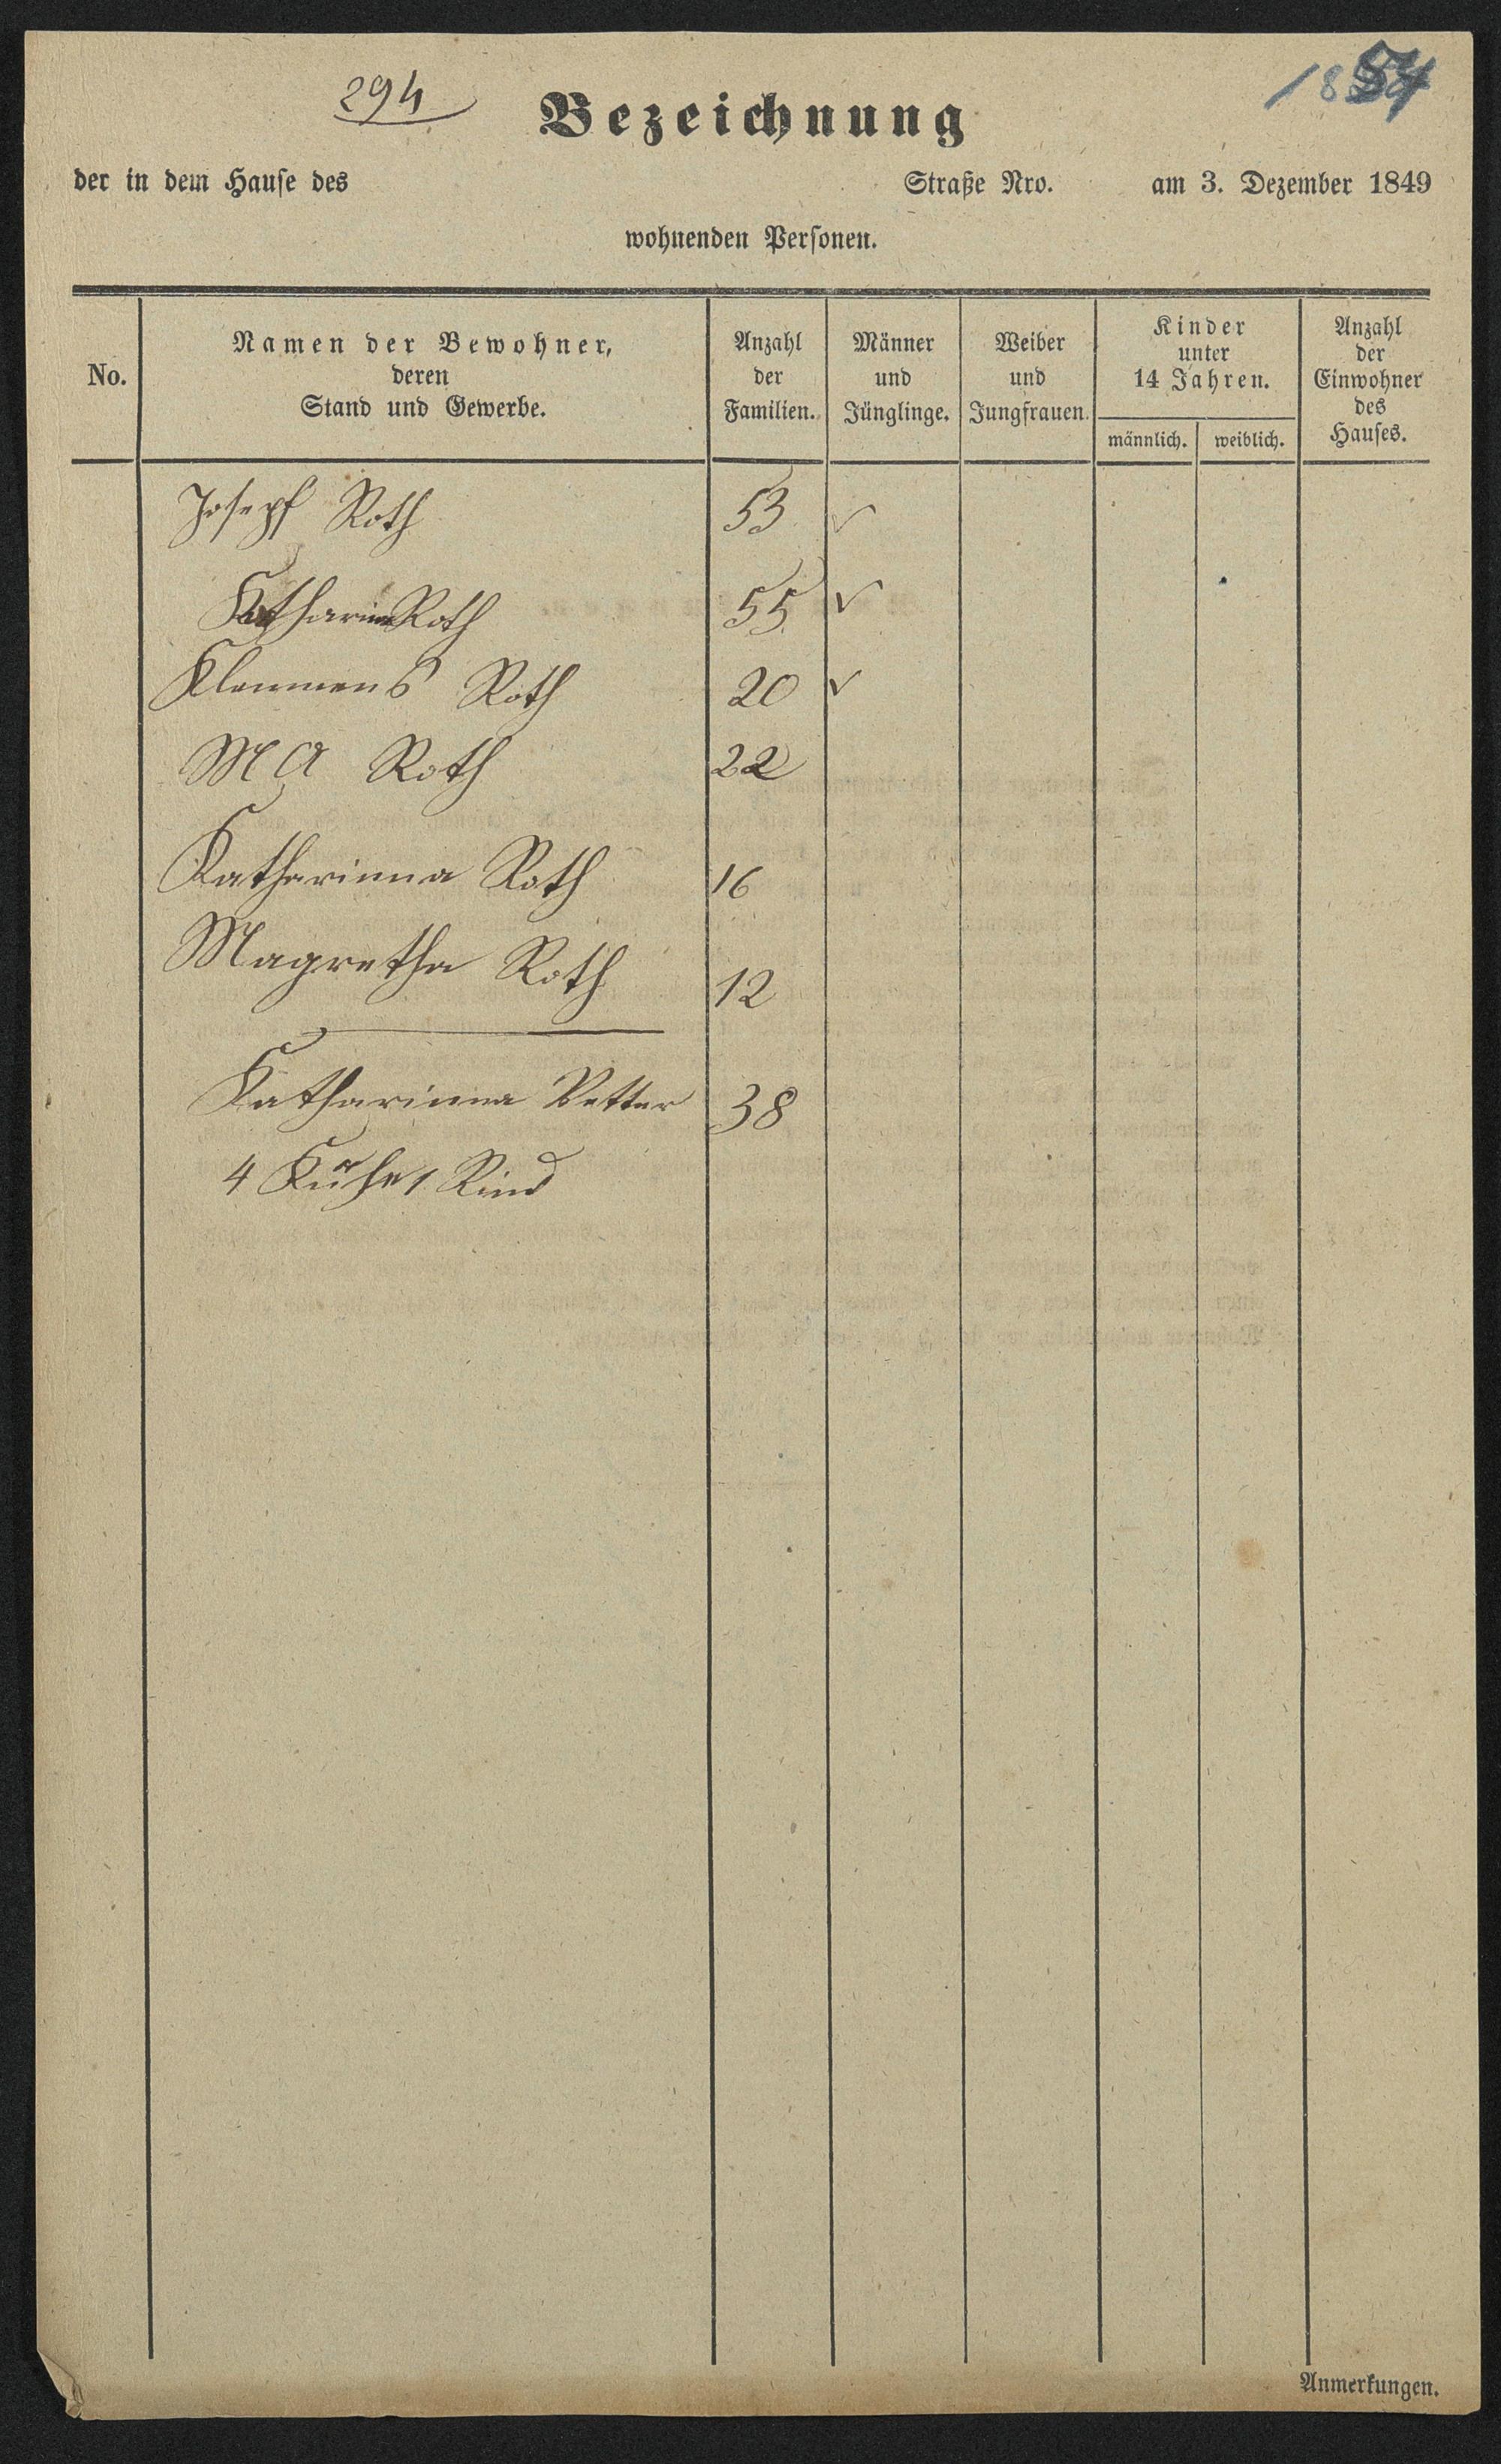 294
18
Bezeichnung
der in dem Hause des Straße Nro. am 3. Dezember 1849
wohnenden Personen.
No.
Namen der Bewohner,
deren
Stand und Gewerbe.
Anzahl
der
Familien.
Männer
und
Jünglinge.
Weiber
und
Jungfrauen.
Kinder
unter
14 Jahren.
männlich. weiblich.
Anzahl
der
Einwohner
des
Hauses.
Josepf Roth 53 ✓
Katharina Roth 55 ✓
Klemmens Roth 20 ✓
M A Roth 22
Katharinna Roth 16
Magretha Roth 12
Katharinna Vetter 38
4 Kühe 1 Rind
Anmerkungen.